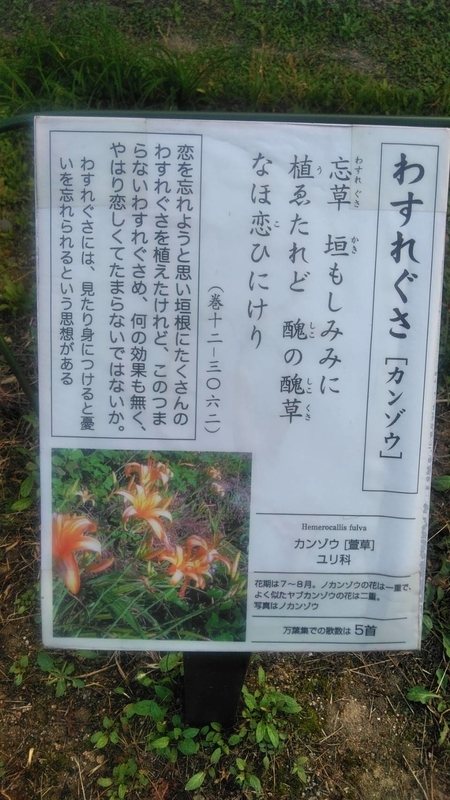 わすれぐさ［カンゾウ］
忘草 垣もしみみに
植ゑたれど 醜の醜草
なほ恋ひにけり
（巻十二－三〇六二）
恋を忘れようと思い垣根にたくさんの
わすれぐさを植えたけれど、このつま
らないわすれぐさめ、何の効果も無く、
やはり恋しくてたまらないではないか。
わすれぐさには、見たり身につけると憂
いを忘れられるという思想がある
Hemerocallis fulva
カンゾウ［萱草］
ユリ科
花期は7～8月。ノカンゾウの花は一重で、
よく似たヤブカンゾウの花は二重。
写真はノカンゾウ
万葉集での歌数は 5首